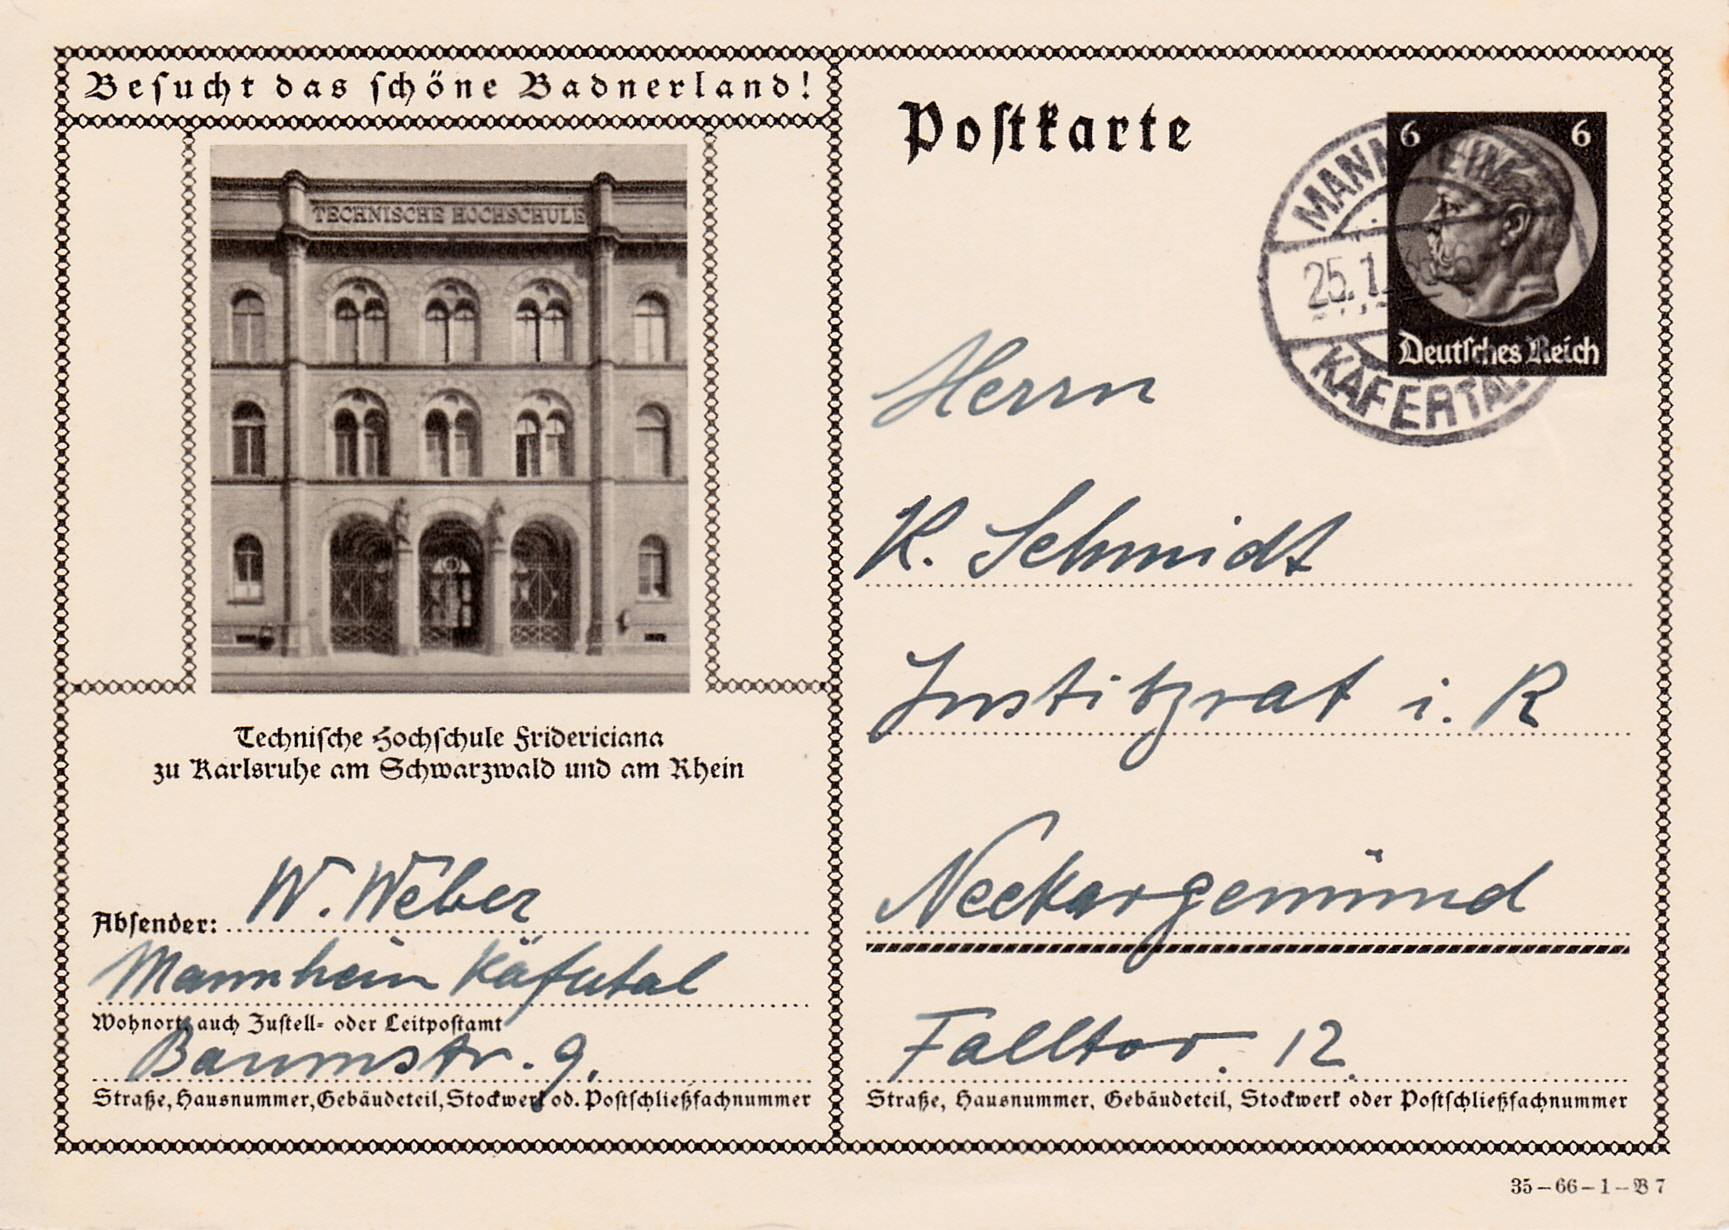 Besucht das schöne Badnerland!
TECHNISCHE HOCHSCHULE
Technische Hochschule Fridericiana
zu Karlsruhe am Schwarzwald und am Rhein
Absender: W. Weber
Mannheim Käfertal
Wohnort, auch Zustell- oder Leitpostamt
Baumstr. 9.
Straße, Hausnummer, Gebäudeteil, Stockwerk od. Postschließfachnummer
Postkarte
6 6
Deutsches Reich
MANNHEIM
25.1.
KÄFERTAL
Herrn
K. Schmidt
Justitzrat i. R
Neckargemünd
Falltor. 12.
Straße, Hausnummer, Gebäudeteil, Stockwerk oder Postschließfachnummer
35-66-1-B7